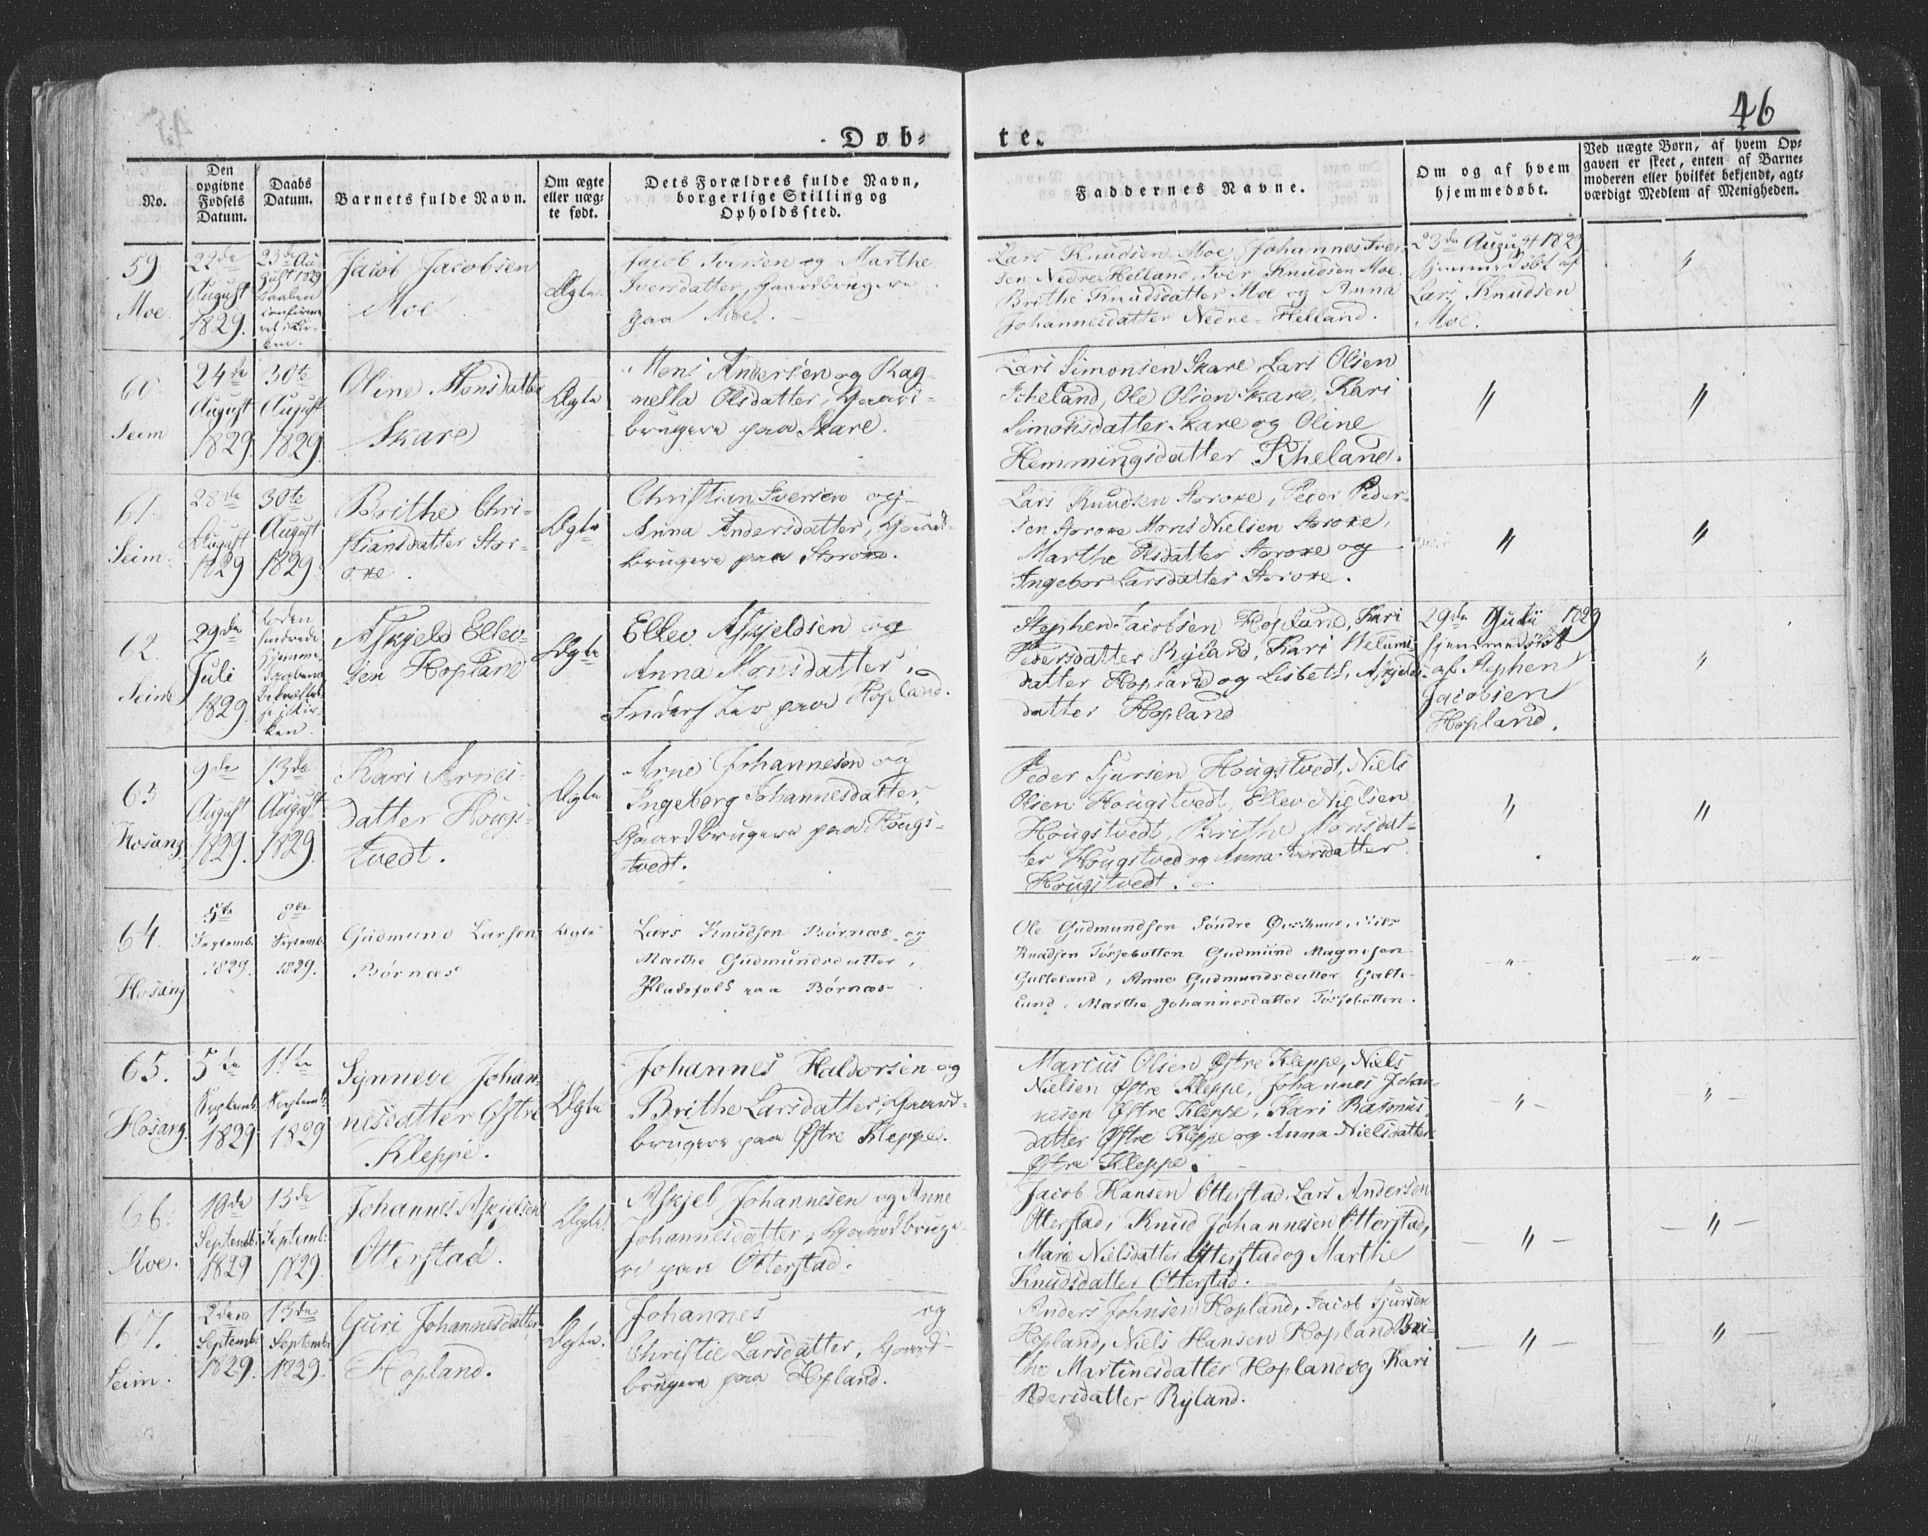 46
Døb-
te.
No.
Den
opgivne
Fødsels
Datum.
Daabs
Datum.
Barnets fulde Navn.
Om ægte
eller uæg-
te født.
Dets Forældres fulde Navn,
borgerlige Stilling og
Opholdssted.
Faddernes Navne.
Om og af hvem
hjemmedøbt.
Ved uægte Børn, af hvem Op-
gaven er skeet, enten af Barne-
moderen eller hvilket bekjendt, agt-
værdigt Medlem af Menigheden.
59.
Moe.
22de
August
1829.
23de Au-
gust 1829
Daaben
confirme-
ret i Kir-
ken.
Jacob Jacobsen
Moe
Ægte.
Jacob Iversen og Marthe
Iversdatter, Gaardbrugere
paa Moe.
Lars Knudsen Moe, Johannes Iver-
sen Nedre Helland, Iver Knudsen Moe
Brithe Knudsdatter Moe og Anna
Johannesdatter Nedre-Helland.
23de August 1829
hjemmedøbt af
Lars Knudsen
Moe.
"
60.
Seim
24de
August
1829
30te
August
1829.
Oline Monsdatter
Skare
Ægte
Mons Andersen og Rag-
nella Olsdatter, Gaard-
brugere paa Skare.
Lars Simonsen Skare, Lars Olsen
Ole Olsen Skare, Kari
Simonsdatter Skare og Oline
Hemmingsdatter
"
"
61.
Seim.
28de
August
1829
30te
August
1829.
Brithe Chri-
stiansdatter Stor-
oxe.
Ægte
Christian Iversen og
Anna Andersdatter, Gaard-
brugere paa Storoxe.
Lars Knudsen Storoxe, Peder Peder-
sen Storoxe Mons Nielsen Storoxe,
Marthe Olsdatter Storoxe og
Ingebor Larsdatter Storoxe.
"
"
62.
Seim
29de
Juli
1829.
Askjeld Ellev-
sen Hopland
Ægte
Ellev Askjeldsen og
Anna Monsdatter,
paa Hopland.
Stephen Jacobsen Hopland, Kari
Pedersdatter Ryland, Kari
datter Hopland og Lisbeth Askjelds-
datter Hopland
29de Julii 1829
hjemmedøbt
af Stephen
Jacobsen
Hopland.
"
63.
Hosang.
9de
August
1829.
13de
August
1829.
Kari Arnes-
datter Hougs-
tvedt.
Ægte
Arne Johannesen og
Ingeborg Johannesdatter,
Gaardbrugere paa Hougs-
tvedt.
Peder Sjursen Hougstvedt, Niels
Olsen Hougstvedt, Ellev Nielsen
Hougstvedt, Brithe Monsdat-
ter Hougstved og Anna Iversdatter
Hougstvedt.
"
"
64.
Hosang
5te
Septemb:
1829.
8de
Septemb:
1829.
Gudmund Larsen
Børnæs
Ægte
Lars Knudsen Børnæs og
Marthe Gudmundsdatter,
Pladsfolk paa Børnæs
Ole Gudmundsen Søndre Nils
Knudsen Tossebotten Gudmund Magnesen
Gulteland, Anne Gudmundsdatter Galte-
lund, Marthe Johannesdatter Tossebotten.
"
"
65.
Hosang.
5te
Septemb:
1829
Septemb:
1829
Synneve Johan-
nesdatter Østre
Kleppe.
Ægte
Johannes Haldorsen og
Brithe Larsdatter, Gaard-
brugere paa Østre Kleppe.
Marcus Olsen Østre Kleppe, Niels
Nielsen Østre Kleppe, Johannes Johan-
nesen Østre Kleppe, Kari Rasmus-
datter Østre Kleppe og Anna Nielsdatter
Østre Kleppe.
"
"
66.
Moe.
Septemb:
1829
13de
Septemb:
1829.
Johannes Askjelsen
Otterstad.
Ægte.
Askjel Johannesen og Anne
Johannesdatter, Gaardbruge-
re paa Otterstad.
Jacob Hansen Otterstad, Lars Andersen
Otterstad, Knud Johannesen Otterstad,
Marie Nielsdatter Otterstad og Marthe
Knudsdatter Otterstad.
"
"
67.
Seim.
2den
Septemb:
1829.
13de
Septemb:
1829.
Guri Johannesdatter
Hopland.
Ægte.
Johannes og
Christie Larsdatter, Gaard-
brugere paa Hopland.
Anders Johnsen Hopland, Jacob Sjursen
Hopland, Niels Hansen Hopland Bri-
the Martinesdatter Hopland og Kari
Pedersdatter Ryland.
"
"